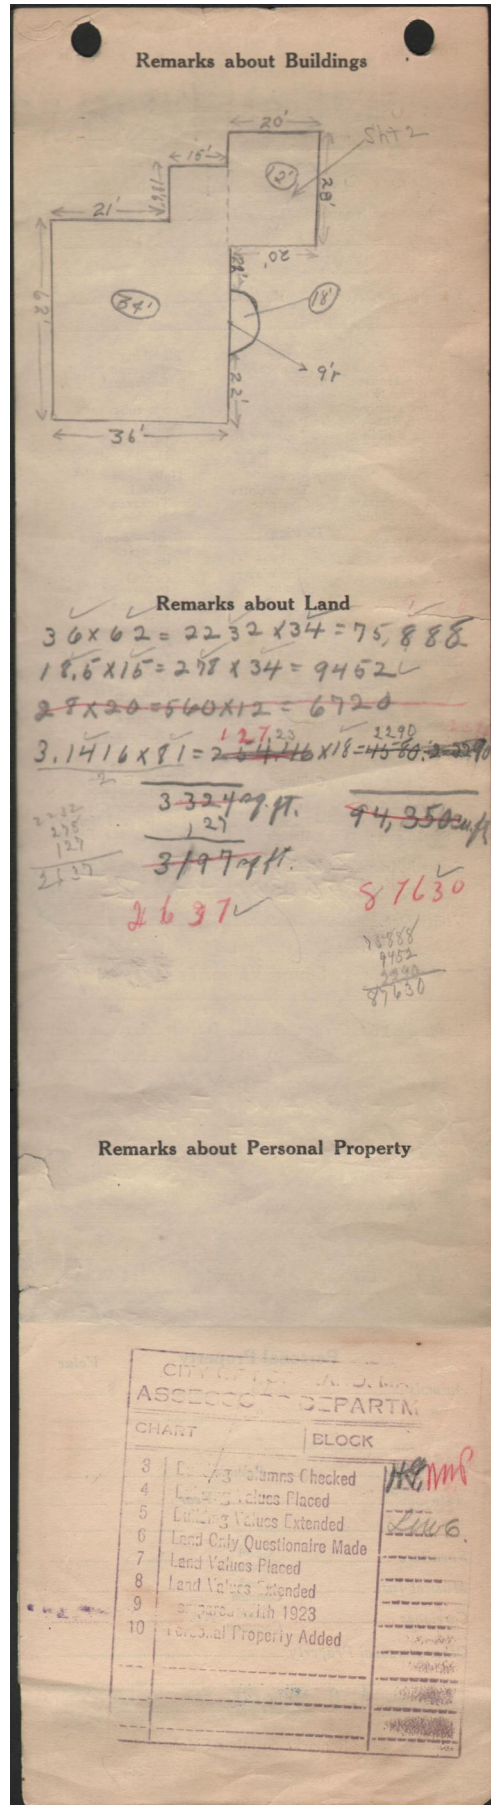 Remarks about Buildings
20'
15'
12'
28'
21'
20'
62'
34'
18'
22'
36'
Remarks about Land
36 x 62 = 2232 x 34 = 75,888
18.5 x 15 = 278 x 34 = 9452
28 x 20 = 560 x 12 = 6720
127.23 2290
3.1416 x 81 = 254.46 x 18 = 4580.2 = 2290
2
3324 sq. ft. 94,350 cu. ft.
127
3197 sq ft.
2232
278
127
2637
2637 87630
75888
9452
2290
87630
Remarks about Personal Property
CHART BLOCK
3 Columns Checked
4 Values Placed
5 Building Values Extended
6 Land Only Questionaire Made
7 Land Values Placed
8 Land Values Extended
9 with 1923
10 Personal Property Added